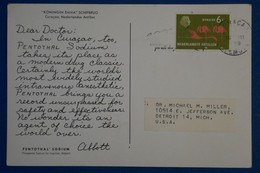 "KONINGIN EMMA" BONTBRUG,
Curaçao, Nederlandse Antillen
Dear Doctor:
In Curaçao, too
PENTOTHAL Sodium
takes its place as
a modern drug classic.
Certainly the world's
most widely studied
intravenous anesthetic,
PENTOTHAL brings you a
record unsurpassed for
safety and effectiveness.
No wonder it's an
agent of choice the
world over.
Abbott
PENTOTHAL® SODIUM
6 c
NEDERLANDSE ANTILLEN
DR. MICHAEL M. MILLER,
10514 E. JEFFERSON AVE.
DETROIT 14, MICH.
U.S.A.